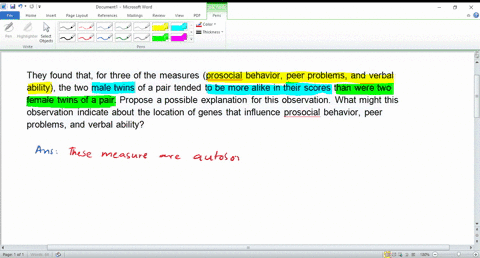 Document1 - Microsoft Word
File Home Insert Page Layout References Mailings Review View Pens
Pen Eraser Select Objects
Color
Thickness
Write Pens
They found that, for three of the measures (prosocial behavior, peer problems, and verbal
ability), the two male twins of a pair tended to be more alike in their scores than were two
female twins of a pair. Propose a possible explanation for this observation. What might this
observation indicate about the location of genes that influence prosocial behavior, peer
problems, and verbal ability?
Ans: These measure are autoson
Page: 1 of 1